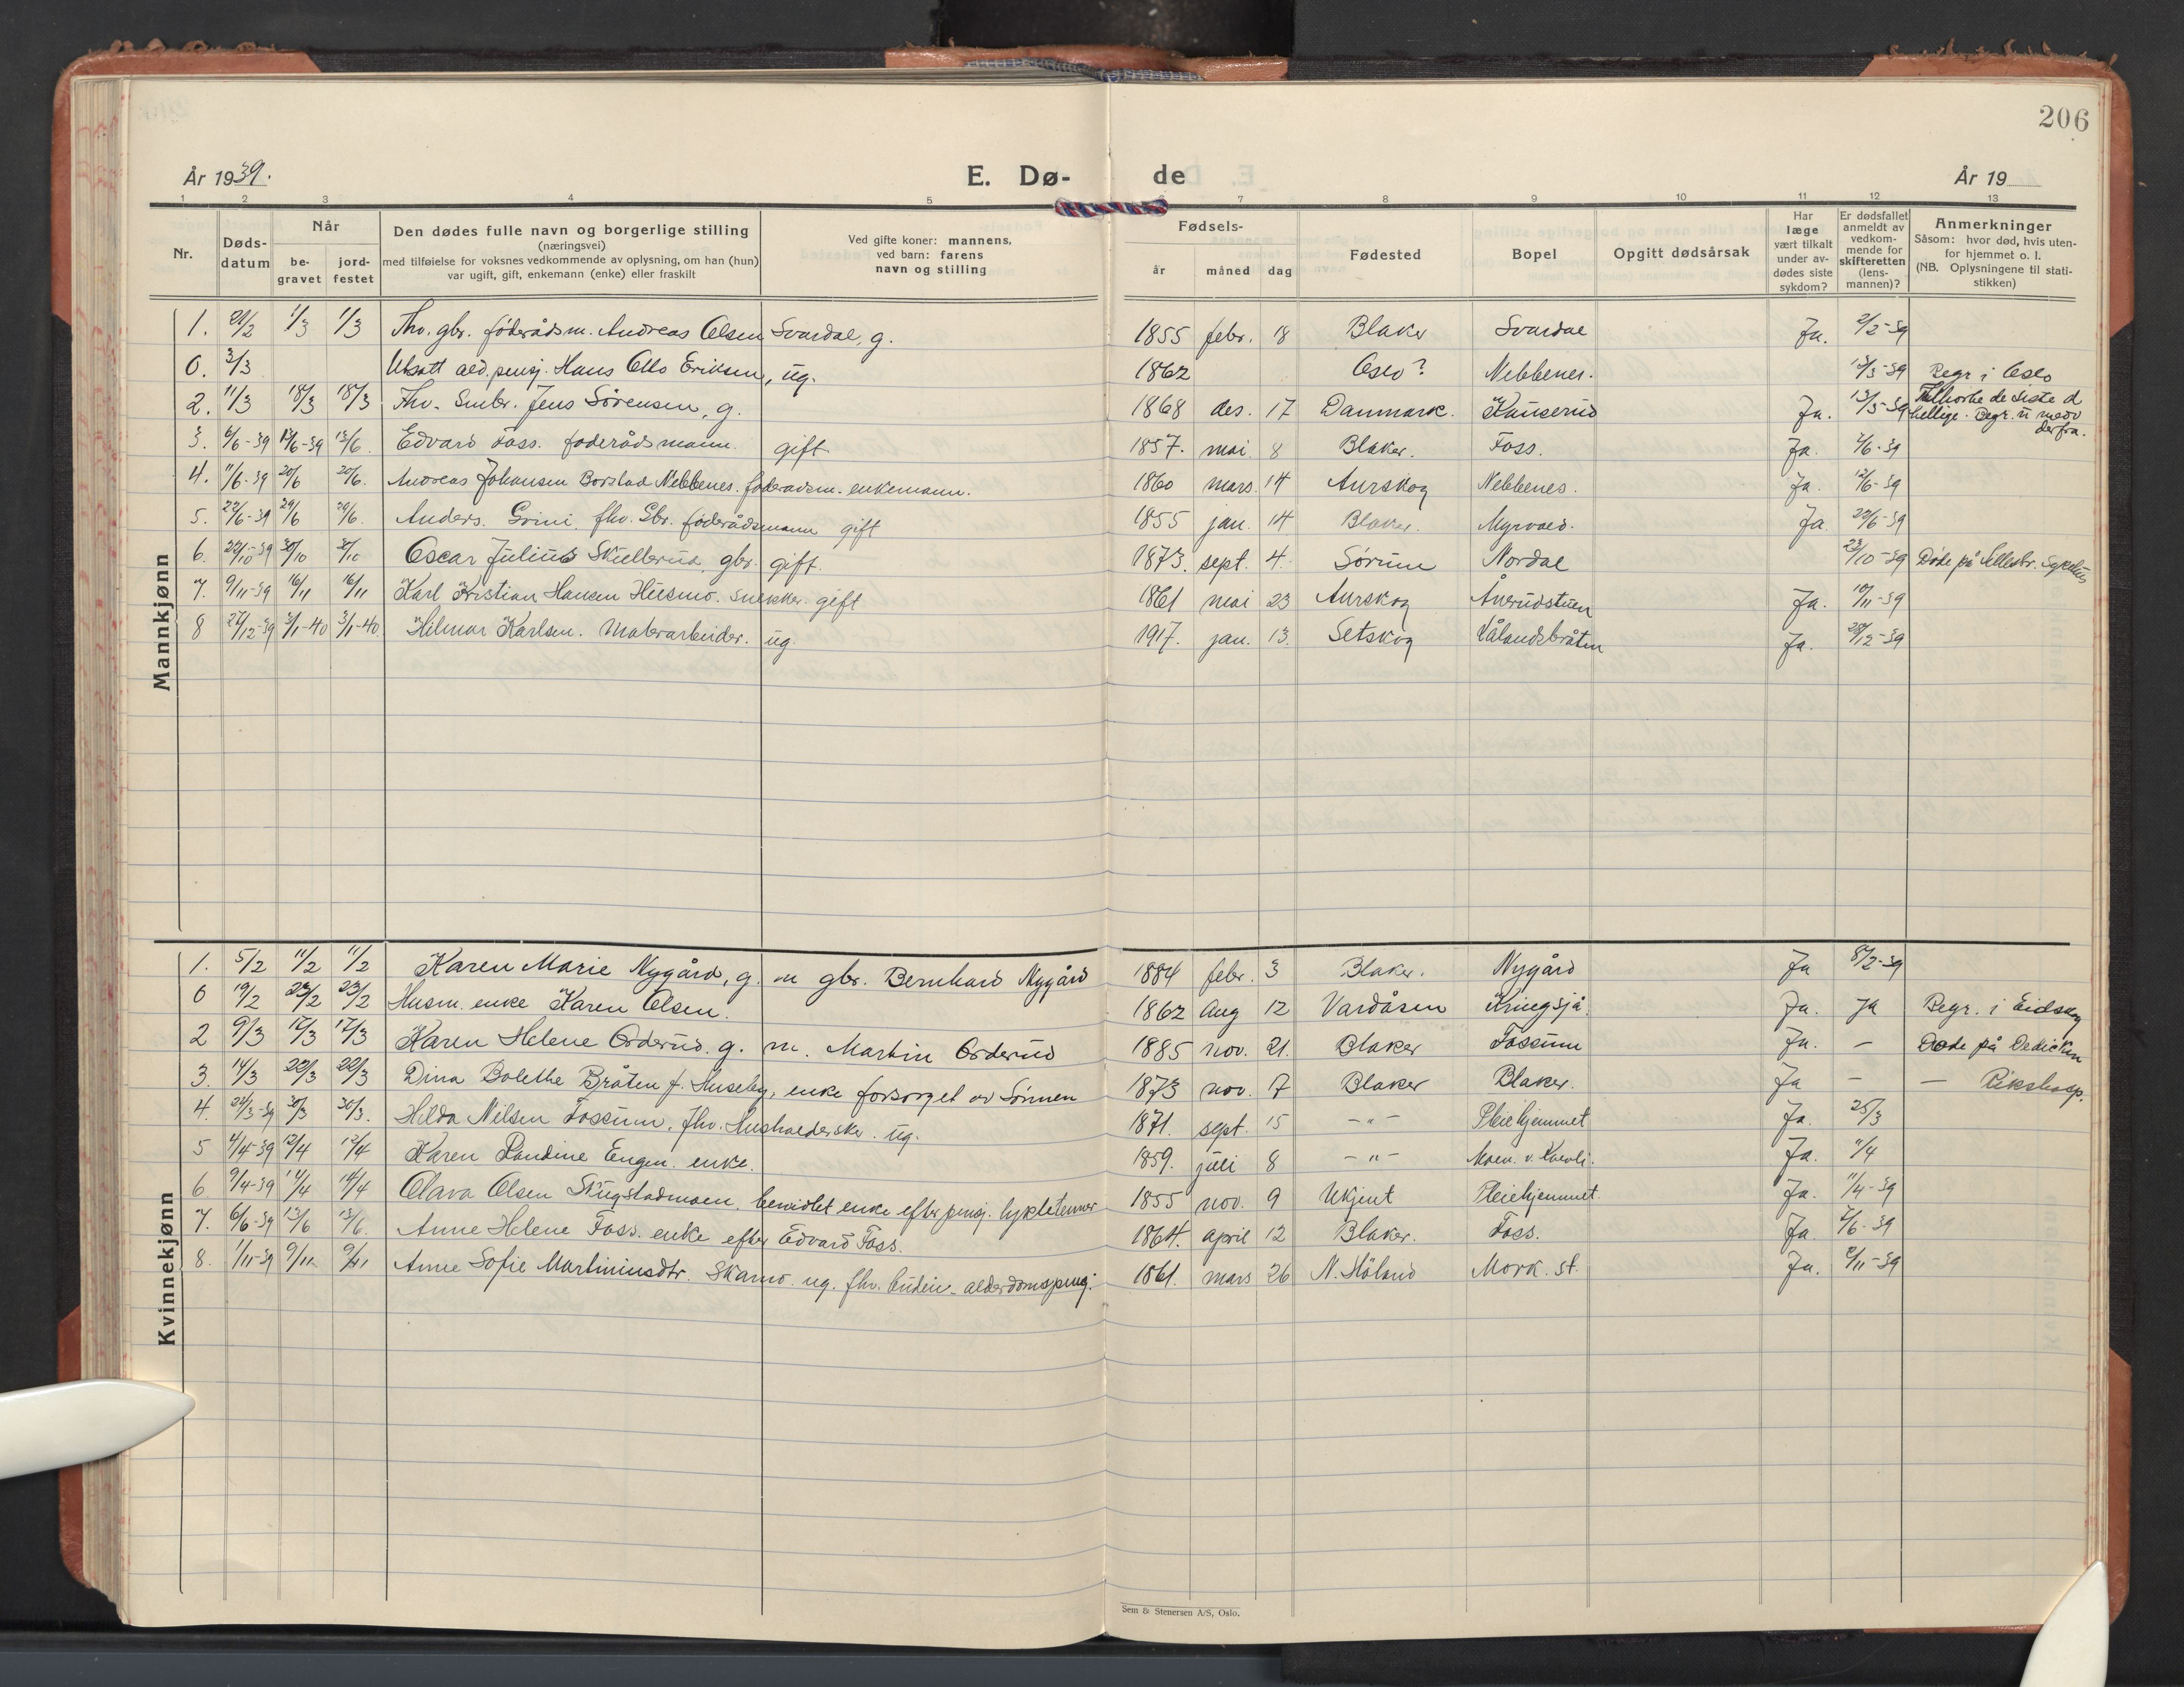 206
År 1939.
E. Dø- de
År 19
1 2 3 4 5 7 8 9 10 11 12 13
Nr.
Døds-datum
Når
be-gravet
jord-festet
Den dødes fulle navn og borgerlige stilling
(næringsvei)
med tilføielse for voksnes vedkommende av oplysning, om han (hun)
var ugift, gift, enkemann (enke) eller fraskilt
Ved gifte koner: mannens,
ved barn: farens
navn og stilling
Fødsels-
år måned dag
Fødested
Bopel
Opgitt dødsårsak
Har læge vært tilkalt under av-dødes siste sykdom?
Er dødsfallet anmeldt av vedkom-mende for skifteretten (lens-mannen)?
Anmerkninger
Såsom: hvor død, hvis uten-for hjemmet o. l.
(NB. Oplysningene til stati-stikken)
Mannkjønn
1. 21/2 1/3 1/3 Fhv. gbr. føderådsm. Andreas Olsen Svardal, g. 1855 febr. 18 Blaker Svardal Ja. 2/2-39
0. 3/3 Utsatt ald. pensj. Hans Otto Eriksen, ug. 1862 Oslo? Nebbenes. 13/3-39 Begr i Oslo
2. 11/3 18/3 18/3 Fhv. Smbr. Jens Sörensen, g. 1868 des. 17 Danmark. Kauserud Ja. 13/3-39 Tilhørte de siste d hellige. Begr. u medv derfra.
3. 6/6-39 13/6-39 13/6. Edvard Foss. føderådsmann. gift 1857. mai 8 Blaker. Foss. Ja. 7/6-39
4. 11/6-39 20/6 20/6. Andreas Johansen Borstad Nebbenes. føderådsm. enkemann. 1860 mars. 14 Aurskog Nebbenes. Ja. 12/6-39
5. 22/6-39 29/6 29/6. Anders. Grini. fhv. Gbr. føderådsmann gift 1855 jan. 14 Blaker. Myrvold. Ja. 22/6-39
6. 22/10-39 30/10 30/10 Oscar Julius Skullerud, gbr. gift. 1873. sept. 4. Sørum Nordal 23/10-39 Døde på Lillestr. Sykehus
7. 9/11-39 16/11 16/11 Karl Kristian Hansen Husmo. snekker. gift 1861 mai 23 Aurskog Ånerudstuen Ja. 10/11-39
8 27/12-39 3/1-40 3/1-40 Hilmar Karlsen. Murerarbeider. ug. 1917. jan. 13. Setskog Vålandsbråten Ja. 28/12-39
Kvinnekjønn
1. 5/2 11/2 11/2 Karen Marie Nygård, g. m gbr. Bernhard Nygård 1884 febr. 3 Blaker. Nygård Ja 8/2-39
0 19/2 23/2 23/2 Husm. enke Karen Olsen. 1862 Aug 12 Vardåsen Kringsjå. Ja. Ja Begr. i Eidskog
2 9/3 17/3 17/3 Karen Helene Orderud. g. m. Martin Orderud 1885 nov. 21. Blaker Fossum Ja. – Døde på Dedichen
3. 14/3 22/3 22/3 Dina Bolethe Bråten f. Huseby, enke forsørget av Sønnen 1873 nov. 17 Blaker Blaker. Ja – – Rikshosp.
4. 24/3-39 30/3 30/3. Hilda Nilsen Fossum. fhv. Husholderske. ug. 1871. sept. 15 –"– Pleiehjemmet Ja. 25/3
5 4/4-39 12/4 12/4 Karen Randine Engen. enke. 1859. juli 8 –"– Moen. v. Ja. 11/4
6. 9/4-39 14/4 14/4 Olava Olsen Skugstadmoen. bemidlet enke efter pensj. lyktetenner 1855 nov. 9 Ukjent Pleiehjemmet. Ja. 11/4-39
7. 6/6-39 13/6 13/6. Anne Helene Foss. enke efter Edvard Foss. 1864. april 12 Blaker. Foss. Ja 7/6-39
8. 1/11-39 9/11 9/11 Anne Sofie Martiniusdtr. Skamo. ug. fhv. budeie – alderdomspensj. 1861. mars 26 N. Höland Mork. st. Ja. 2/11-39
Sem & Stenersen A/S, Oslo.